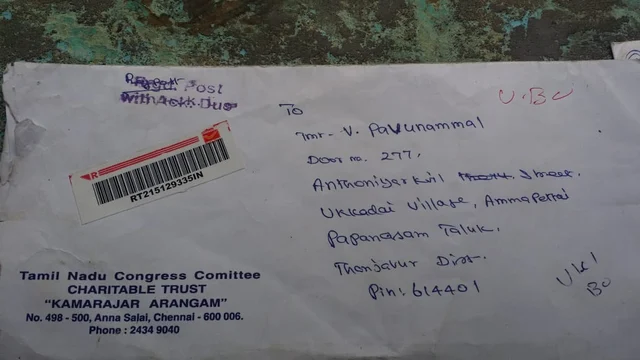 Regd. Post
With Ack. Due
R
RT215129335IN
Tamil Nadu Congress Comittee
CHARITABLE TRUST
"KAMARAJAR ARANGAM"
No. 498 - 500, Anna Salai, Chennai - 600 006.
Phone : 2434 9040
U.BO
To
Tmr. V. Pavunammal
Door no. 277,
Anthoniyar koil Street.
Ukkadai Village, AmmaPettai
Papanasam Taluk.
Thanjavur Dist.
Pin: 614401
UKI
BO